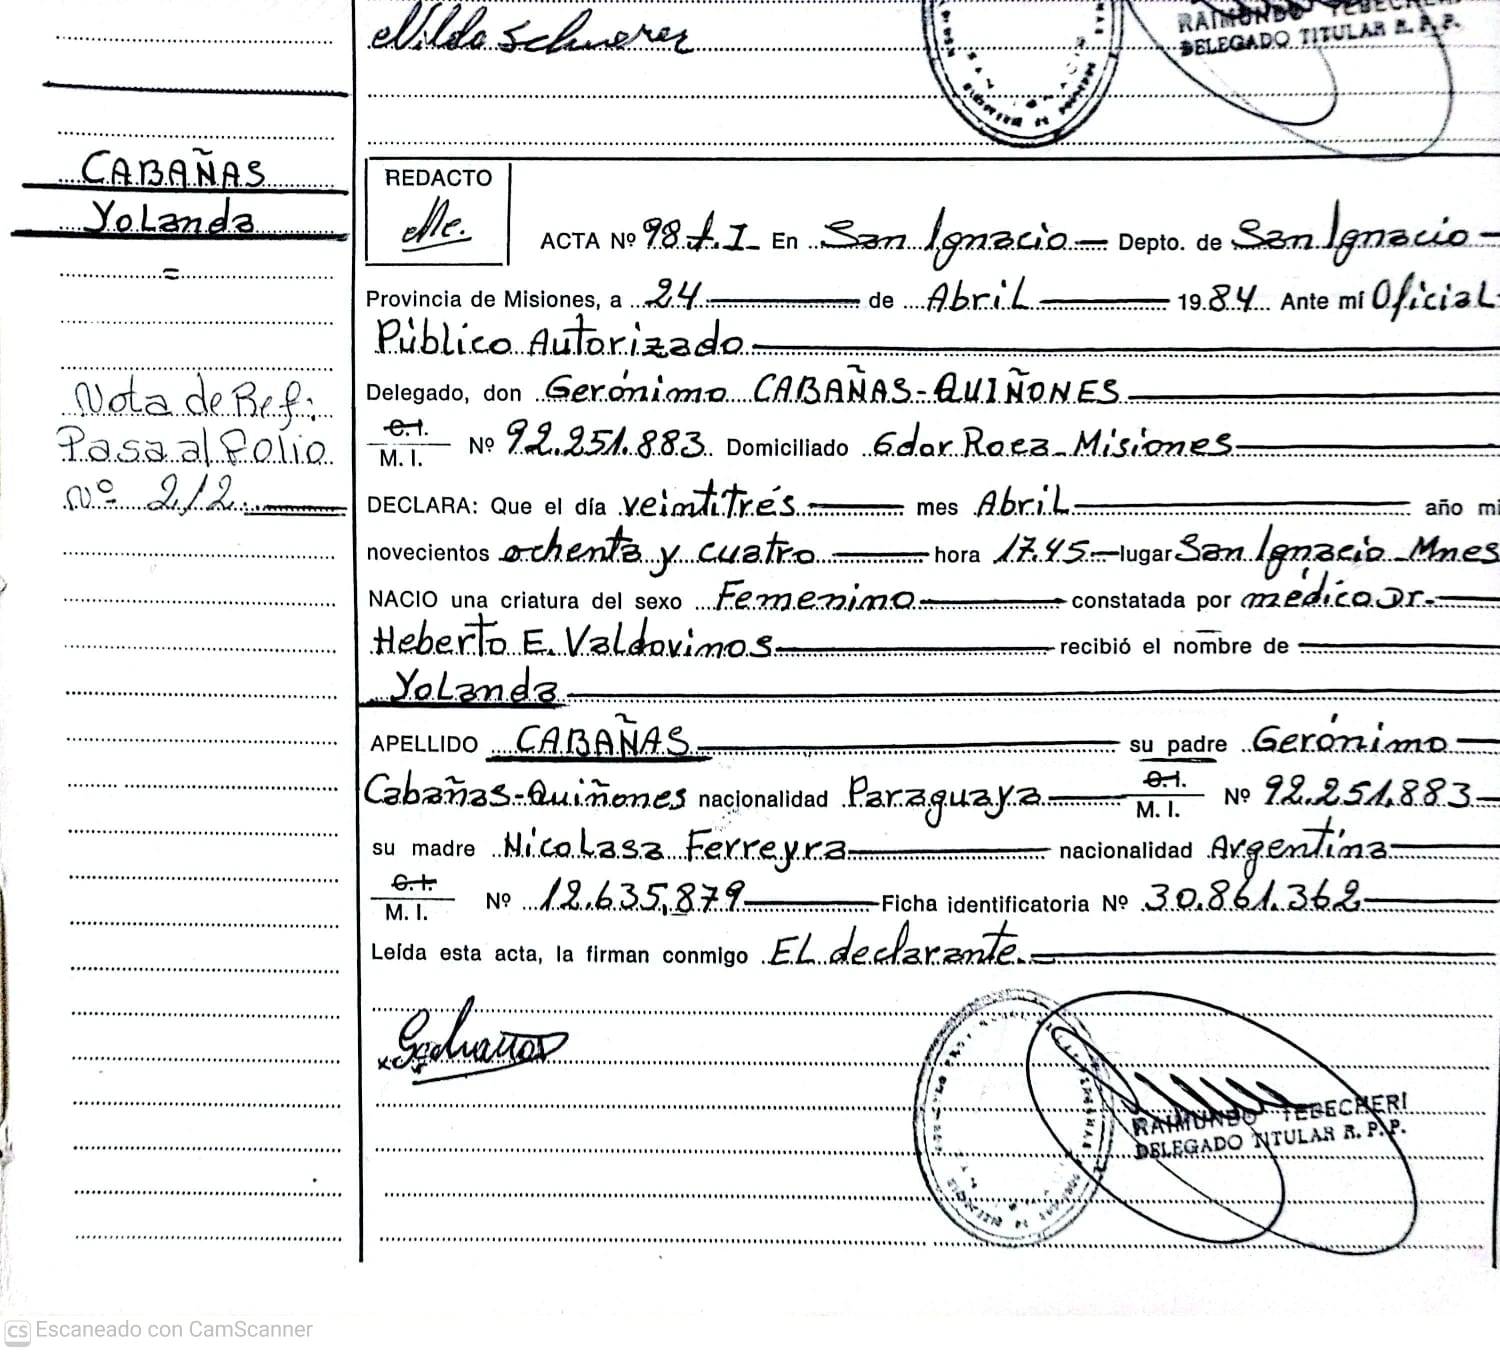 Nilda Schuerer
RAIMUNDO TEBECHERI
DELEGADO TITULAR R. P. P.
CABAÑAS
Yolanda
=
Nota de Ref:
Pasa al Folio
Nº 212
REDACTO
ACTA Nº 98 T. I En San Ignacio Depto. de San Ignacio
Provincia de Misiones, a 24 de Abril 1984 Ante mí Oficial
Público Autorizado
Delegado, don Gerónimo CABAÑAS-QUIÑONES
C.I.
M. I. Nº 92.251.883 Domiciliado Gdor Roca - Misiones
DECLARA: Que el día veintitrés mes Abril año mi
novecientos ochenta y cuatro hora 17.45 lugar San Ignacio Mnes
NACIO una criatura del sexo Femenino constatada por médico Dr.
Heberto E. Valdovinos recibió el nombre de
Yolanda
APELLIDO CABAÑAS su padre Gerónimo
Cabañas-Quiñones nacionalidad Paraguaya C.I. M. I. Nº 92.251.883
su madre Nicolasa Ferreyra nacionalidad Argentina
C.I.
M. I. Nº 12.635,879 Ficha identificatoria Nº 30.861.362
Leída esta acta, la firman conmigo EL declarante.
RAIMUNDO TEBECHERI
DELEGADO TITULAR R. P. P.
CS Escaneado con CamScanner